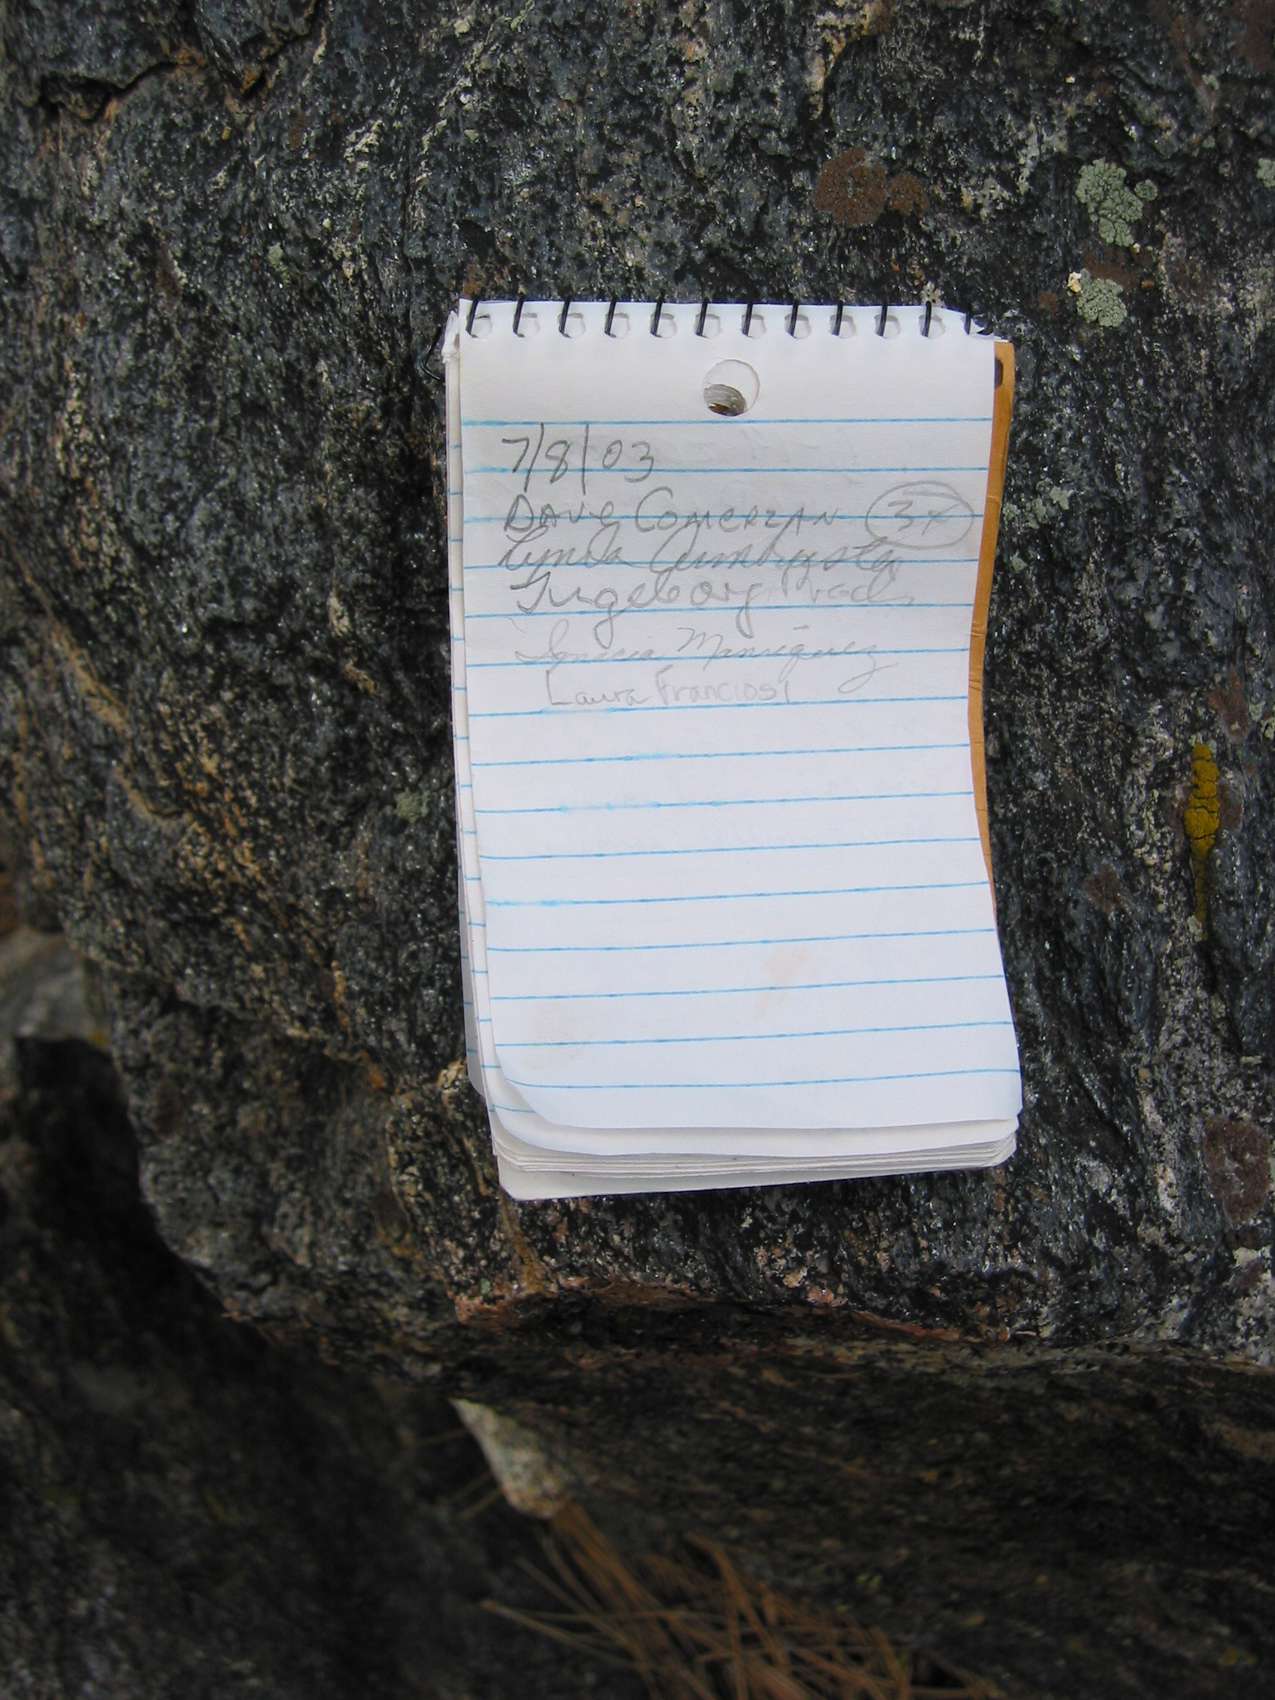 7/8/03
DAVE COMERZAN 3X
Lynda Armbruster
Ingeborg Prochazka
Ignacia Manriquez
Laura Franciosi